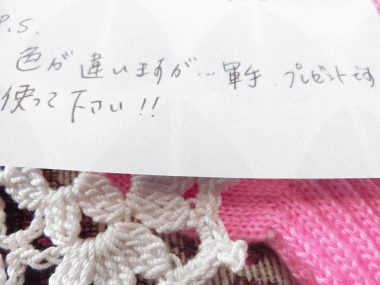 P.S.
色が違いますが…軍手 プレゼントです
使って下さい!!